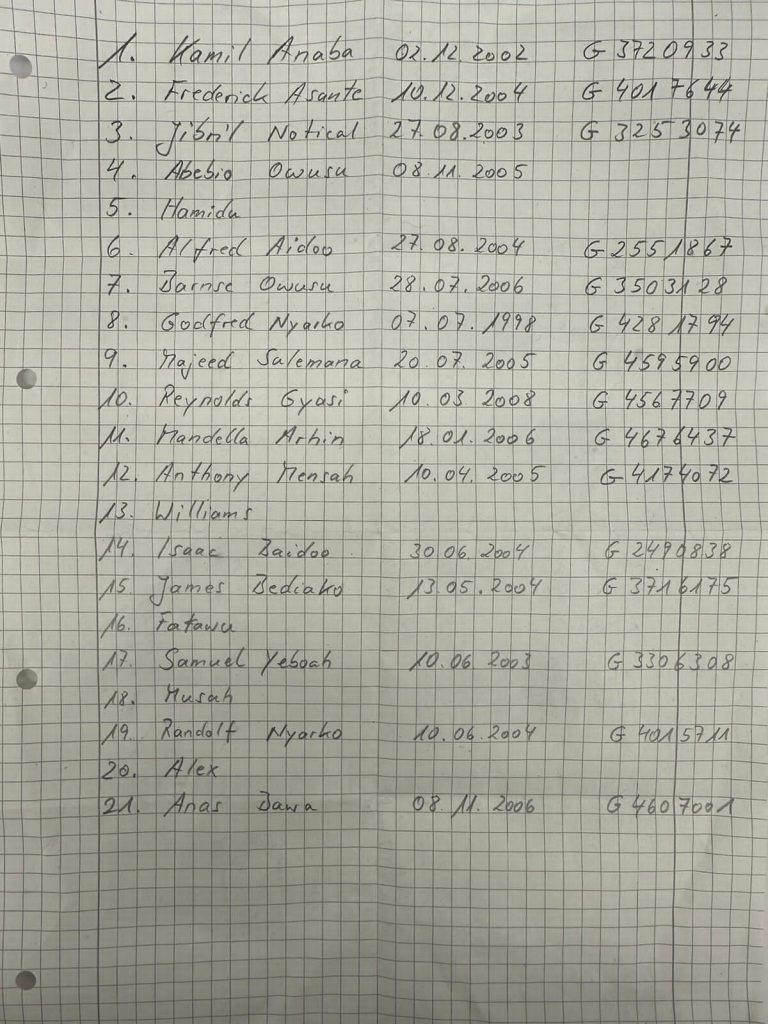 1. Kamil Anaba 02.12.2002 G 3720933
2. Frederick Asante 10.12.2004 G 4017644
3. Jibril Notical 27.08.2003 G 3253074
4. Abebio Owusu 08.11.2005
5. Hamidu
6. Alfred Aidoo 27.08.2004 G 2551867
7. Barnse Owusu 28.07.2006 G 3503128
8. Godfred Nyarko 07.07.1998 G 4281794
9. Majeed Sulemana 20.07.2005 G 4595900
10. Reynolds Gyasi 10.03.2008 G 4567709
11. Mandella Arhin 18.01.2006 G 4676437
12. Anthony Mensah 10.04.2005 G 4174072
13. Williams
14. Isaac Baidoo 30.06.2004 G 2490838
15. James Bediako 13.05.2004 G 3716175
16. Fatawu
17. Samuel Yeboah 10.06.2003 G 3306308
18. Musah
19. Randolf Nyarko 10.06.2004 G 4015711
20. Alex
21. Anas Bawa 08.11.2006 G 4607001